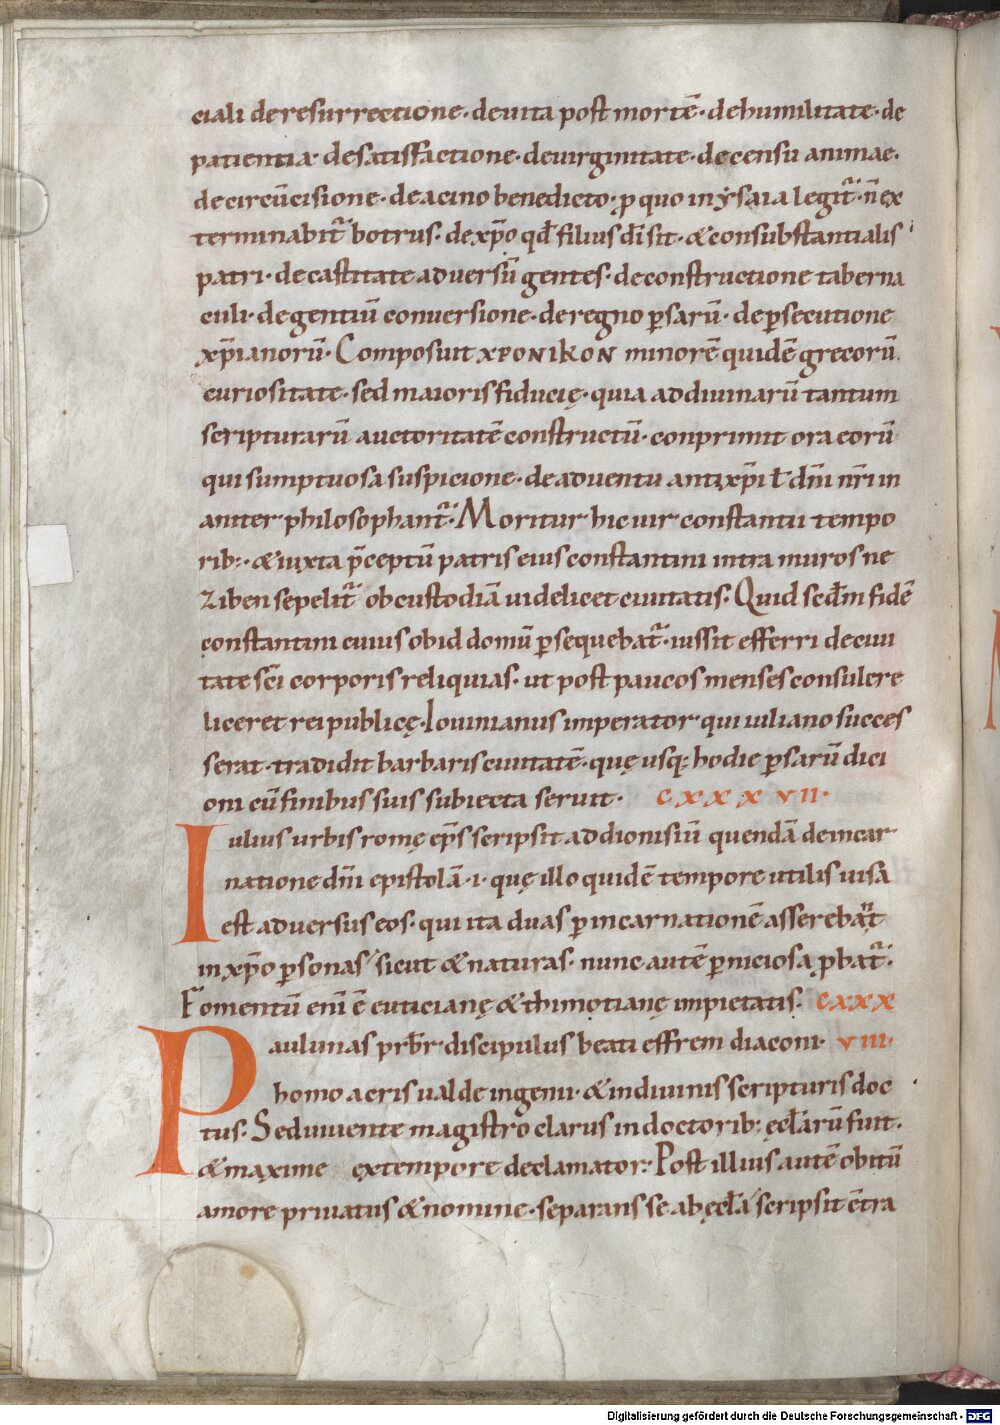 ciali de resurrectione · de uita post mortē · de humilitate · de
patientia · de satisfactione · de uirginitate · de censu animae ·
de circūcisione · de acino benedicto · ꝑ quo in ysaia legit᷑ · n̄ ex
terminabit᷑ botrus · de xp̄o qđ filius dī sit · & consubstantialis
patri · de castitate aduersū gentes · de constructione taberna
culi · de gentiū conuersione · de regno ꝑsarū · de ꝑsecutione
xp̄ianorū · Composuit xронікон minorē quidē grecorū
curiositate · sed maioris fiducię · quia ad diuinarū tantum
scripturarū auctoritatē constructū · conprimit ora eorū
qui sumptuosa suspicione · de aduentu antixp̄i ł dn̄i nr̄i in
aniter philosophant᷑ · Moritur hic uir constantii tempo
rib; · & iuxta p̄ceptū patris eius constantini intra muros ne
ziben sepelit᷑ ob custodiā uidelicet ciuitatis · Quid scđm fidē
constantini cuius ob id domū ꝑsequebat᷑ · iussit efferri de ciui
tate sc̄i corporis reliquias · ut post paucos menses consulere
liceret rei publicę · Iouinianus imperator · qui iuliano succes
serat · tradidit barbaris ciuitatē · quę usq; hodie ꝑsarū dici
oni cū finibus suis subiecta seruit · cxxxvii ·
Iulius urbis romę ep̄s scripsit ad dionisiū quendā de incar
natione dn̄i epistolā · i · quę illo quidē tempore utilis uisa
est aduersus eos · qui ita duas ꝑ incarnationē asserebat᷑
in xp̄o ꝑsonas sicut & naturas · nunc autē ꝑniciosa ꝓbat᷑ ·
Fomentū enī ē euticianę & thimotianę impietatis · cxxx
Paulunas prb̄r discipulus beati effrem diaconi · viii ·
homo acris ualde ingenii · & in diuinis scripturis doc
tus · Sed uiuente magistro clarus in doctorib; ęcłarū fuit ·
& maxime ex tempore declamator · Post illius autē obitū
amore priuatus & nomine · separans se ab ęcła scripsit c̄tra
Digitalisierung gefördert durch die Deutsche Forschungsgemeinschaft - DFG